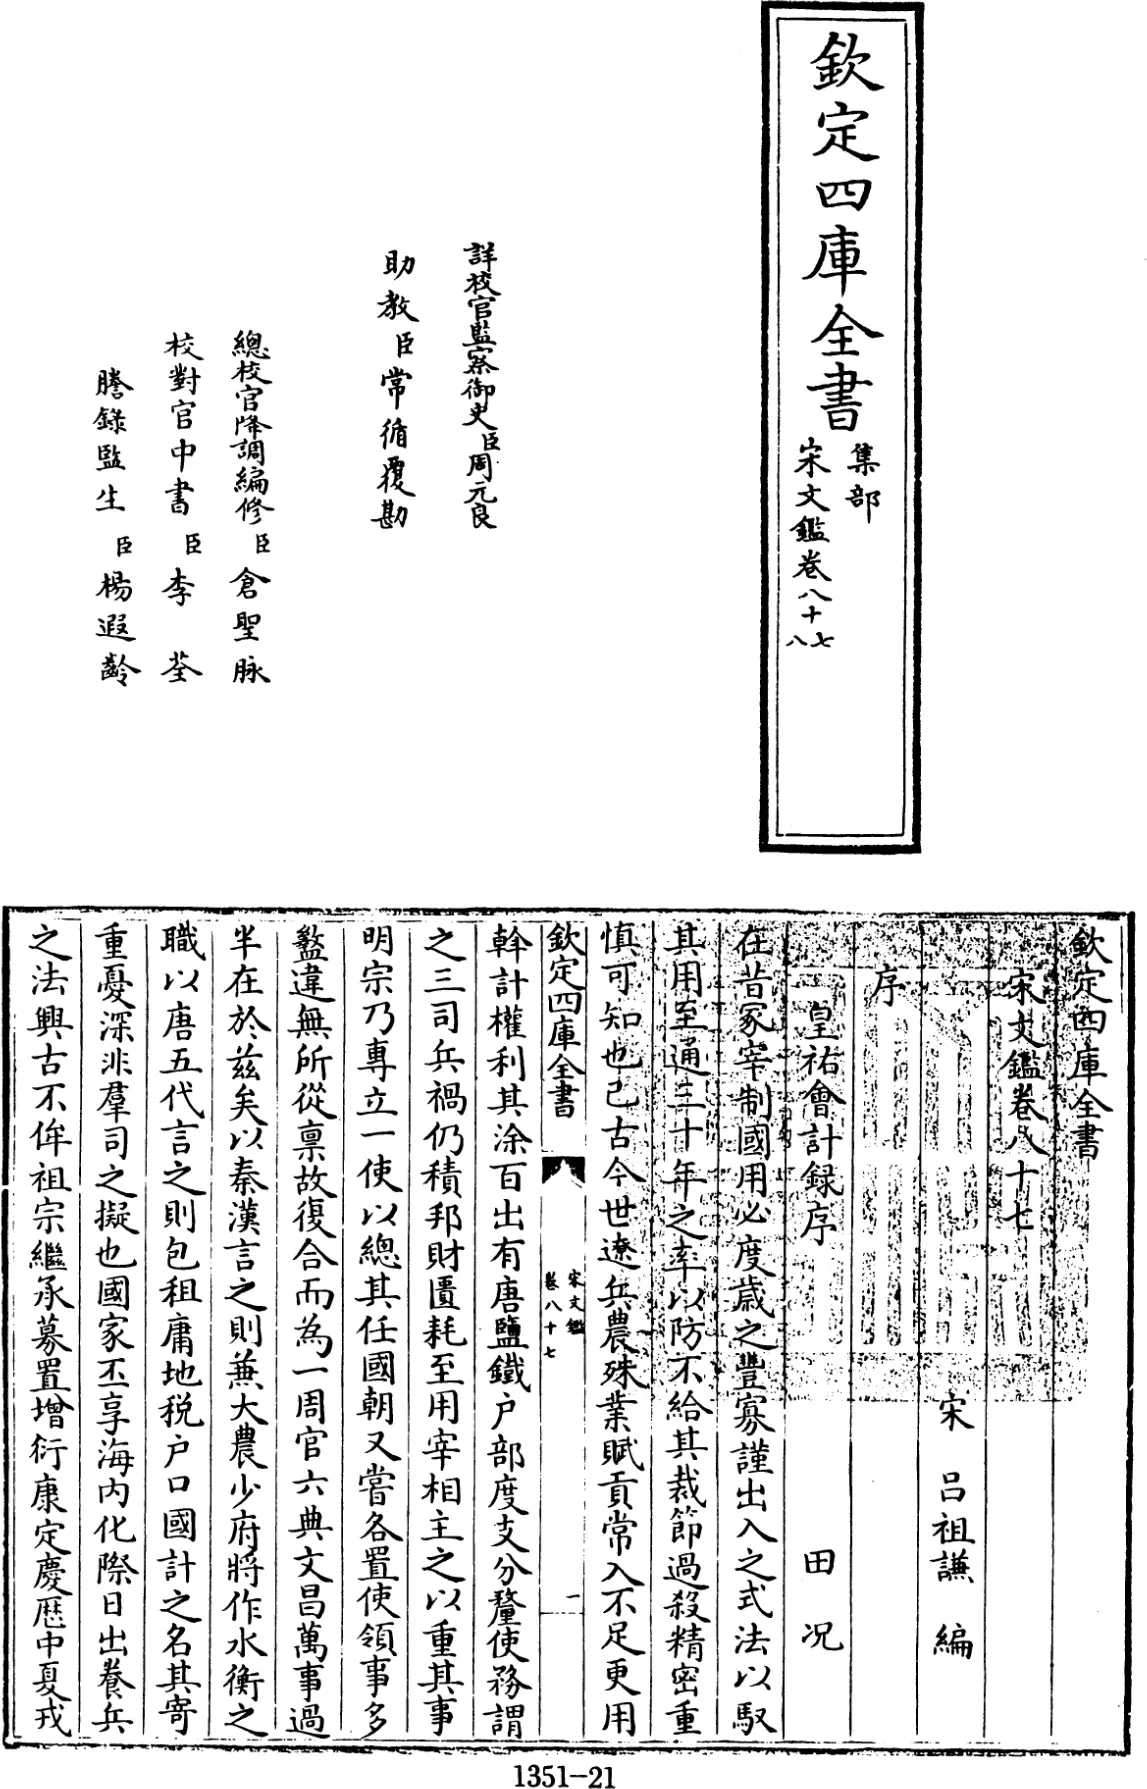 欽定四庫全書
集部
宋文鑑卷八十七
八
詳校官監察御史臣周元良
助教臣常循覆勘
總校官降調編修臣倉聖脉
校對官中書臣李荃
謄錄監生臣楊遐齡
欽定四庫全書
宋文鑑卷八十七
宋 呂祖謙 編
序
皇祐會計録序 田况
在昔冢宰制國用必度歲之豐寡謹出入之式法以馭
其用至通三十年之率以防不給其裁節過殺精密重
慎可知也已古今世遼兵農殊業賦貢常入不足更用
欽定四庫全書
宋文鑑
卷八十七
一
幹計權利其涂百出有唐鹽鐵户部度支分釐使務謂
之三司兵禍仍積邦財匱耗至用宰相主之以重其事
明宗乃專立一使以總其任國朝又嘗各置使領事多
盭違無所從禀故復合而為一周官六典文昌萬事過
半在於兹矣以秦漢言之則兼大農少府將作水衡之
職以唐五代言之則包租庸地税户口國計之名其寄
重憂深非羣司之擬也國家丕享海内化際日出養兵
之法興古不侔祖宗繼承募置增衍康定慶歴中夏戎
1351-21